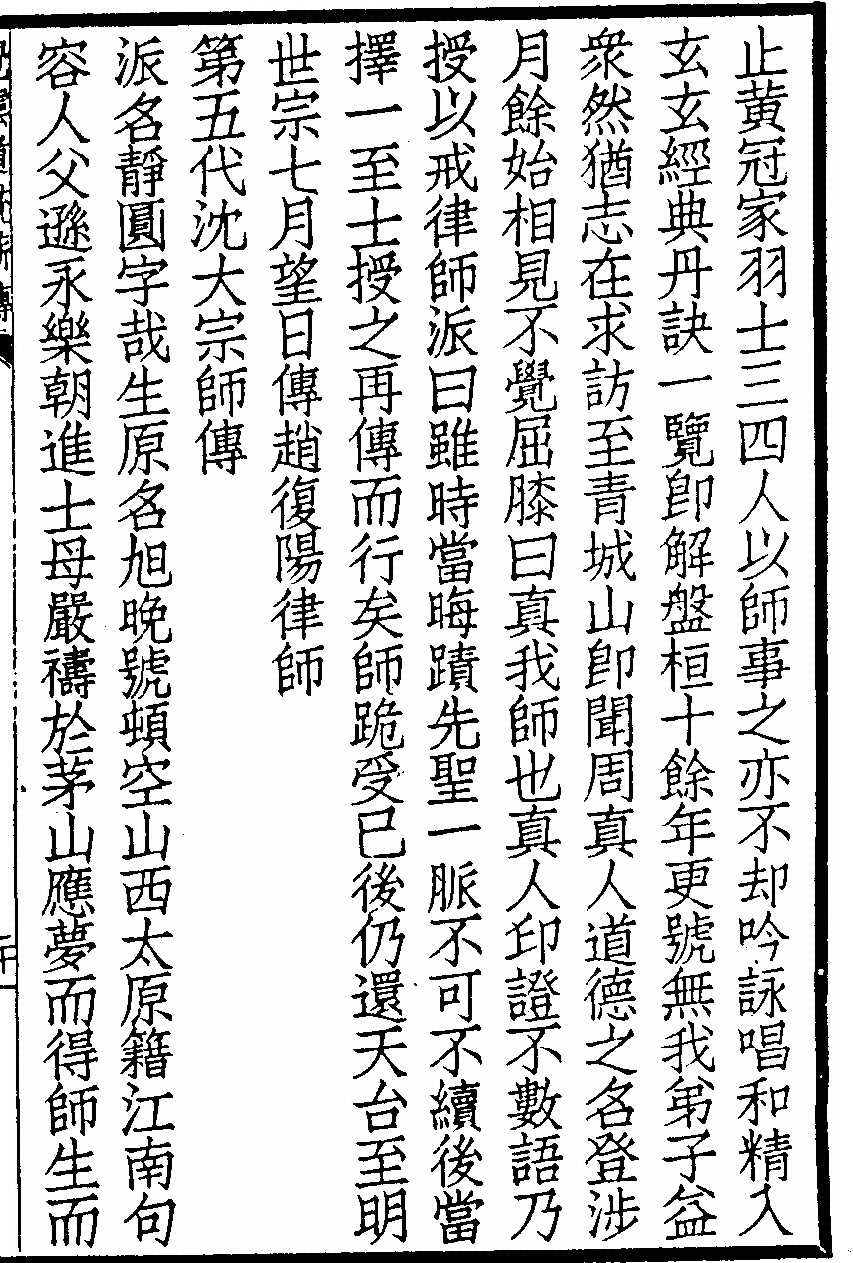 止黄冠家羽士三四人以師事之亦不却吟詠唱和精入
玄玄經典丹訣一覽卽解盤桓十餘年更號無我弟子益
衆然猶志在求訪至青城山卽聞周真人道德之名登涉
月餘始相見不覺屈膝曰真我師也真人印證不數語乃
授以戒律師派曰雖時當晦蹟先聖一脈不可不續後當
擇一至士授之再傳而行矣師跪受已後仍還天台至明
世宗七月望日傳趙復陽律師
第五代沈大宗師傳
派名靜圓字哉生原名旭晚號頓空山西太原籍江南句
容人父遜永樂朝進士母嚴禱於茅山應夢而得師生而